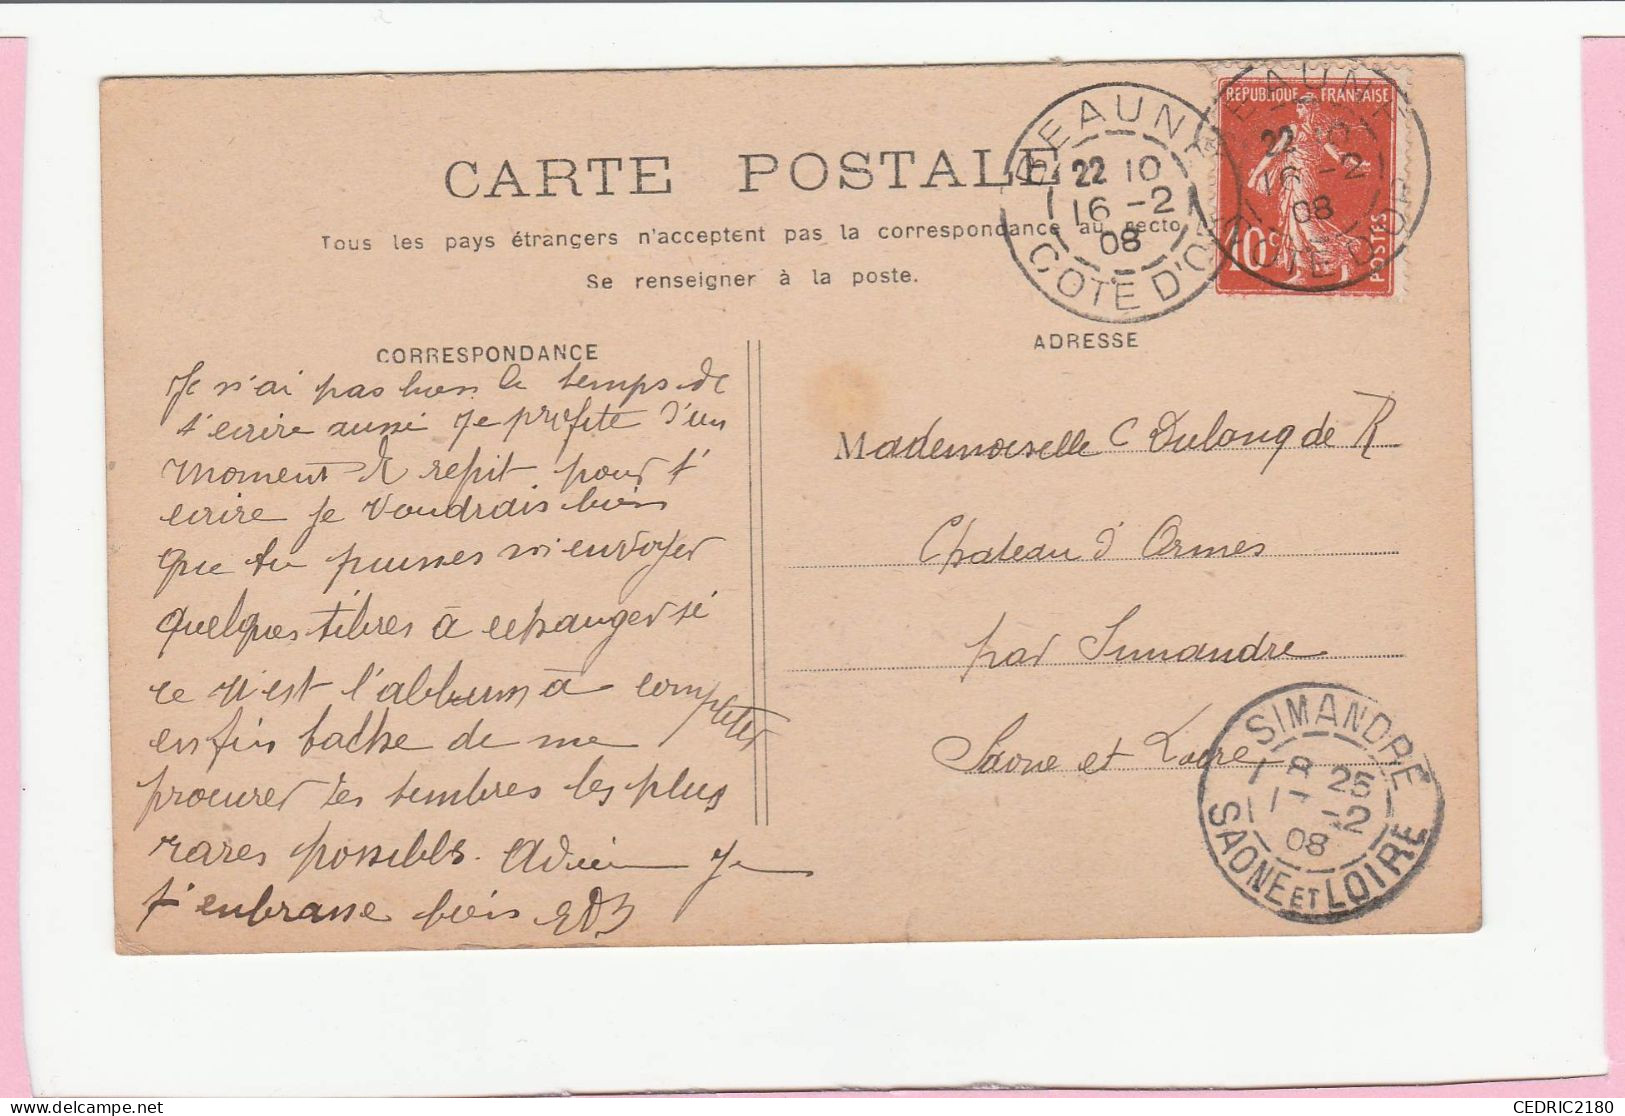 CARTE POSTALE
Tous les pays étrangers n'acceptent pas la correspondance au recto
Se renseigner à la poste.
BEAUNE
22 10
16 -2
08
COTE D'OR
BEAUNE
22 10
16 -2
08
COTE D'OR
REPUBLIQUE FRANÇAISE
10c
POSTES
CORRESPONDANCE
Je n'ai pas bien le temps de
t'ecrire aussi je profite d'un
moment de repit pour t'
ecrire je voudrais bien
que tu puisses m'envoyer
quelques tibres à echanger si
ce n'est l'album à completer
enfin tache de me
procurer les timbres les plus
rares possibles. Adieu Je
t'enbrasse bien EDB
ADRESSE
Mademoiselle C Dulong de R
Chateau d'Ormes
par Simandre
Saone et Loire
SIMANDRE
8 25
17 -2
08
SAONE ET LOIRE
CEDRIC2180